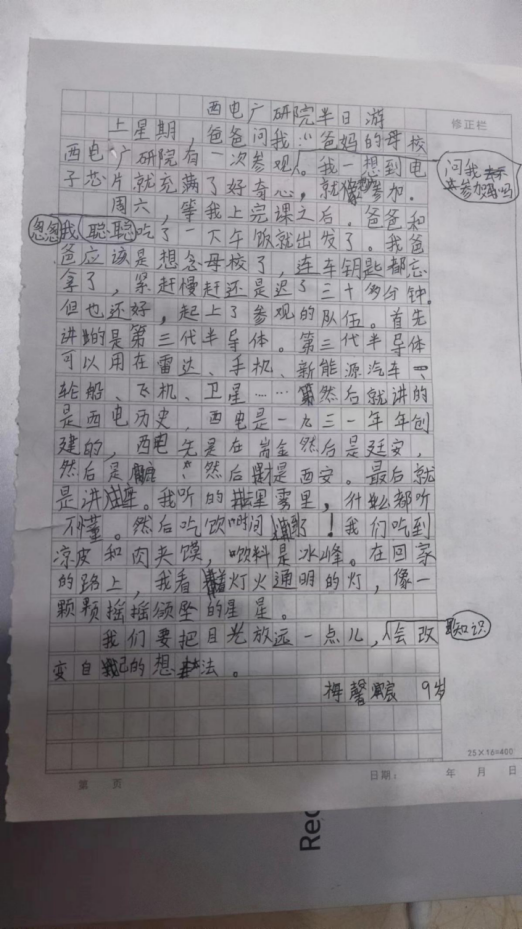 西电广研院半日游
上星期，爸爸问我：“爸妈的母校
西电广研院有一次参观。我一想到电
子芯片就充满了好奇心，就像参加。
周六，等我上完课之后，爸爸和
我聪聪吃了一下午饭就出发了。我爸
爸应该是想念母校了，连车钥匙都忘
拿了，紧赶慢赶还是迟了三十多分钟。
但也还好，起上了参观的队伍。首先
讲的是第三代半导体。第三代半导体
可以用在雷达、手机、新能源汽车、
轮船、飞机、卫星……然后就讲的
是西电历史，西电是一九三一年年创
建的，西电先是在 金然后是廷安，
然后是 ，然后是西安。最后就
是讲 。我听的 里雾里，什么都听
不懂。然后吃饭时间 了！我们吃到
凉皮和肉夹馍，饮料是冰峰。在回家
的路上，我看 灯火通明的灯，像一
颗颗摇摇颂坠的星是。
我们要把目光放远一点儿，会改
变自己的想法。
馨宸 9岁
修正栏
问我去不去参加吗
忽忽
知识
25×16=400
第 页
日期： 年 月 日
Rec